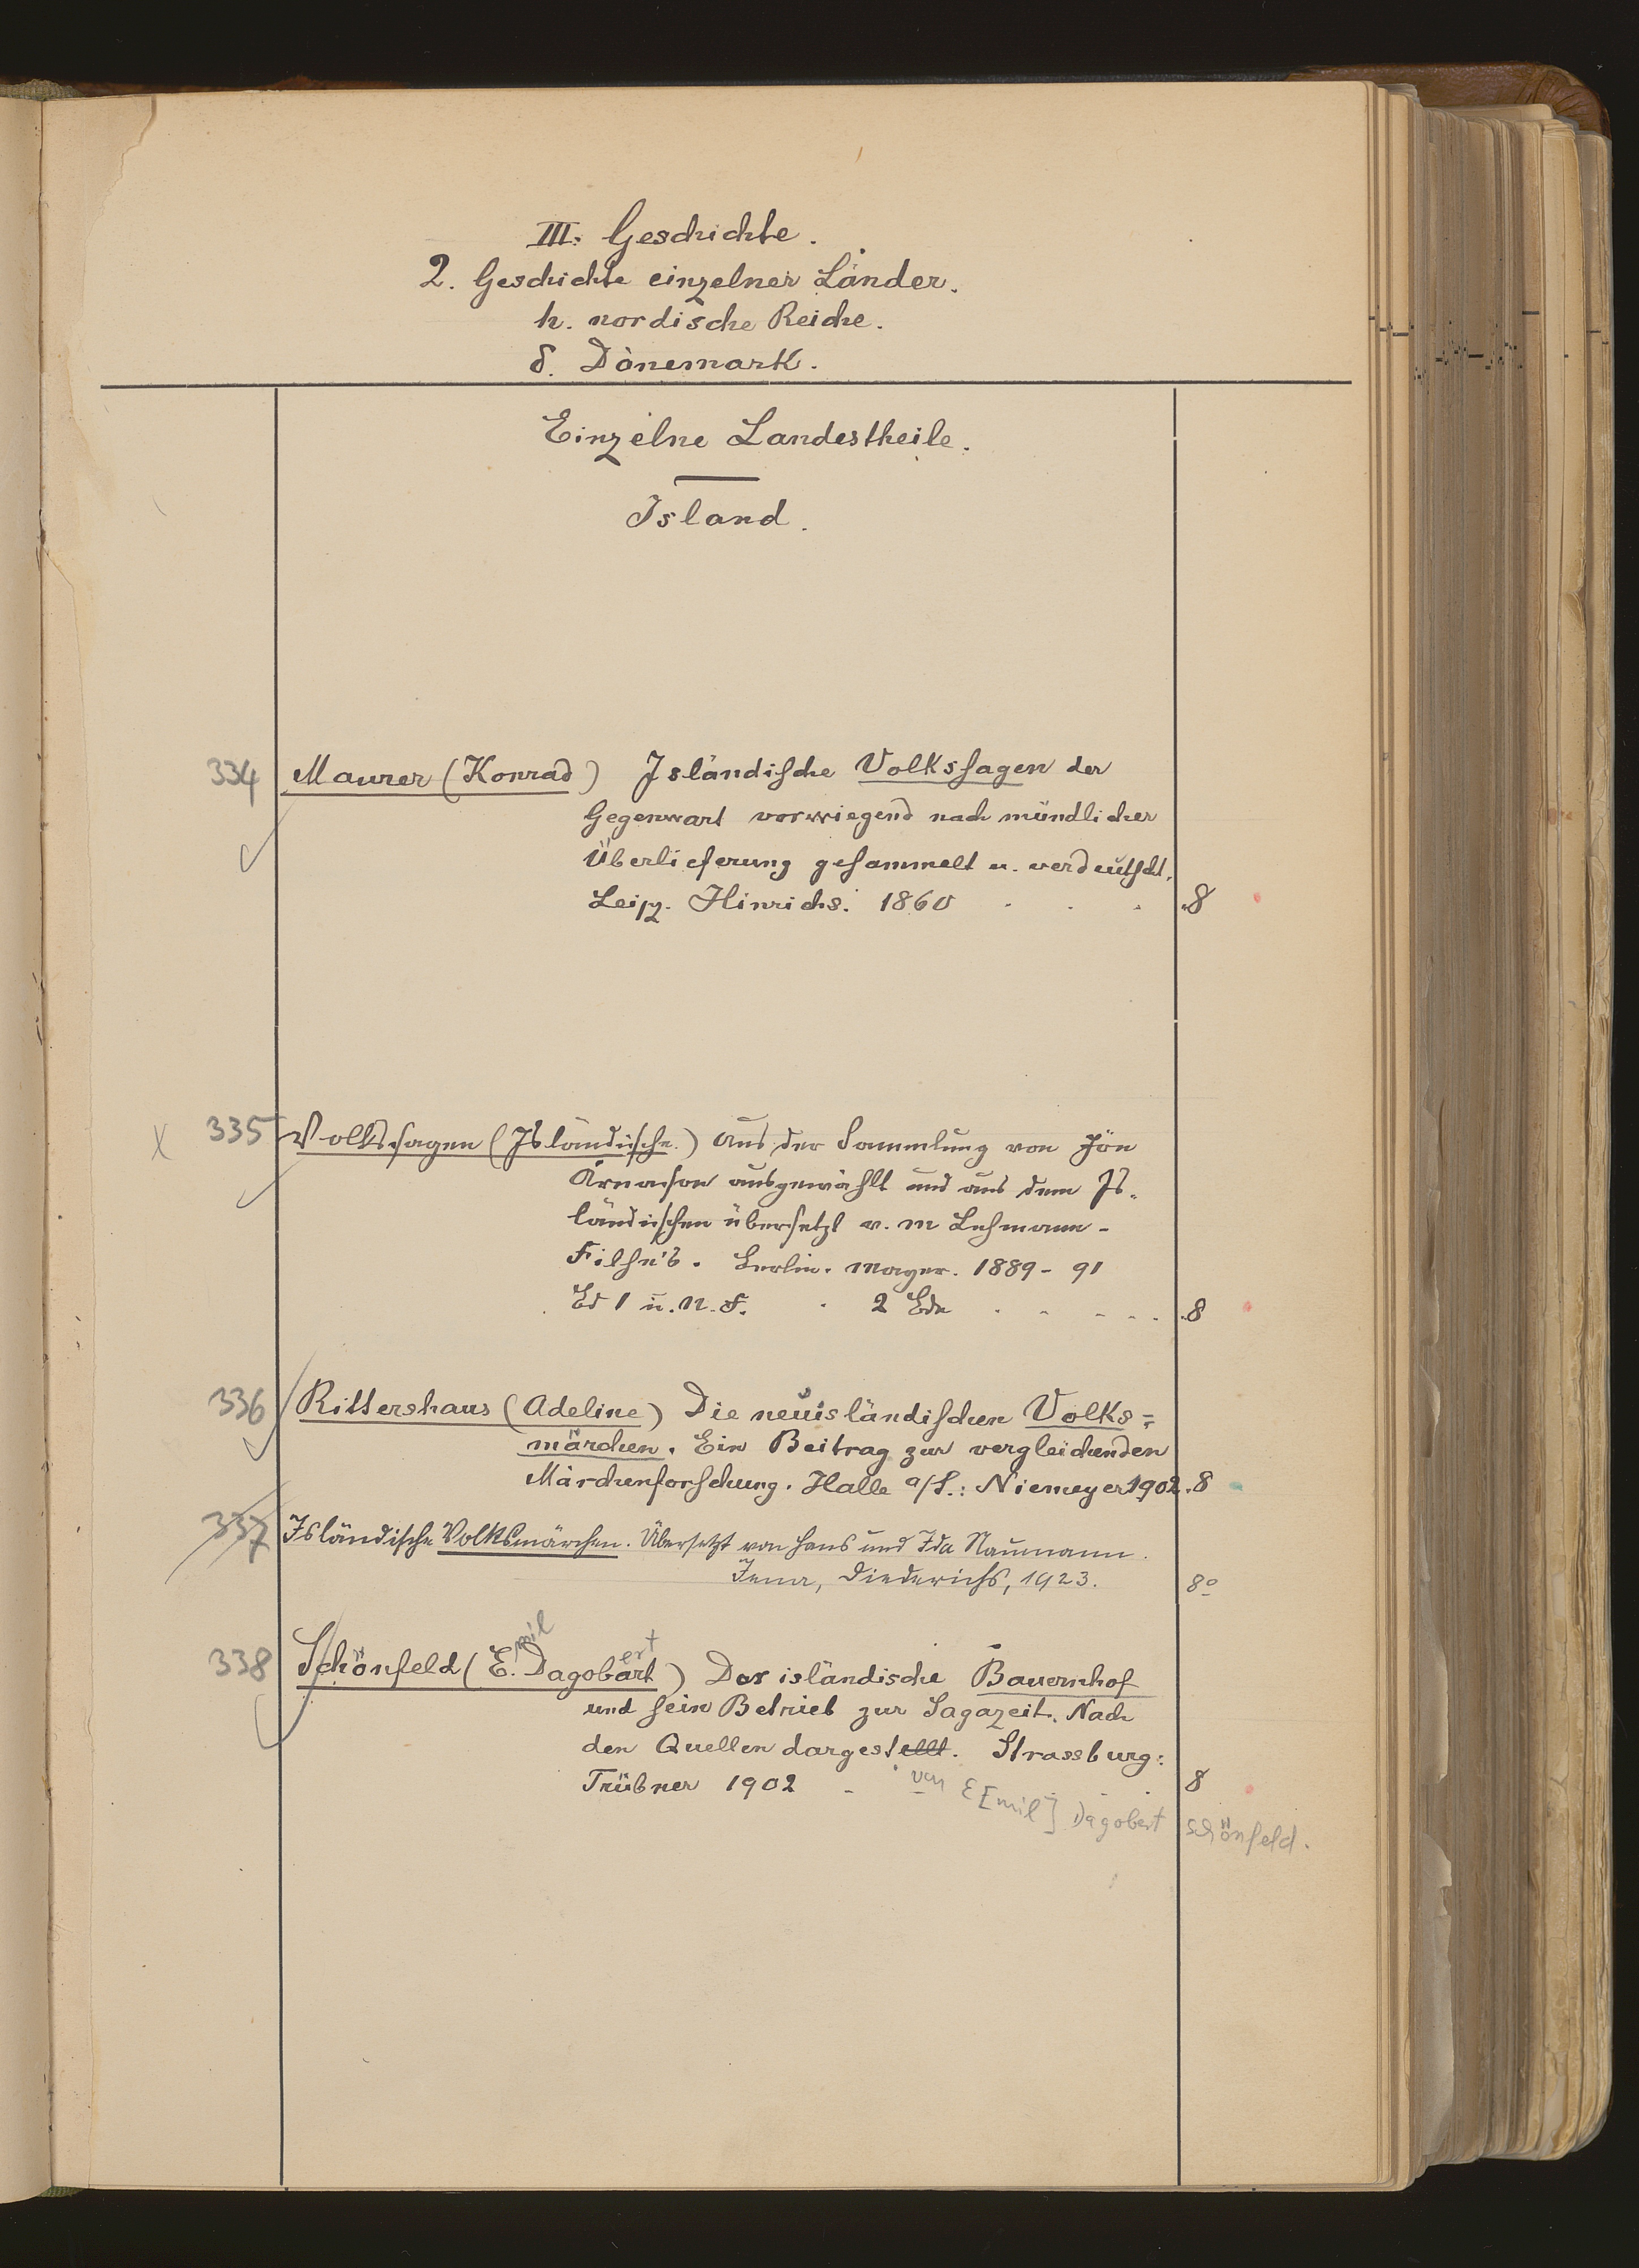 III. Geschichte.
2. Geschichte einzelner Länder.
h. nordische Reiche.
δ. Dänemark.
Einzelne Landestheile.
Island.
334 Maurer (Konrad) Isländische Volkssagen der
Gegenwart vorwiegend nach mündlicher
Überlieferung gesammelt u. verdeutscht.
Leipz. Hinrichs. 1860 . . . 8
X 335 Volkssagen (Isländische.) aus der Sammlung von Jón
Árnason ausgewählt und aus dem Is-
ländischen übersetzt v. M Lehmann-
Filhés. Berlin. Mayer. 1889-91
Bd 1 u. N. F. . 2 Bde . . . . . 8
336 Rittershaus (Adeline) Die neuisländischen Volks=
märchen. Ein Beitrag zur vergleichenden
Märchenforschung. Halle a/S.: Niemeyer 1902. 8
337 Isländische Volksmärchen. Übersetzt von Hans und Ida Naumann.
Jena, Diederichs, 1923. 8º
mil ert
338 Schönfeld (E. Dagobart) Der isländische Bauernhof
und sein Betrieb zur Sagazeit. Nach
den Quellen dargestellt. Strassburg:
Trübner 1902 - . . 8
von E[mil] Dagobert Schönfeld.